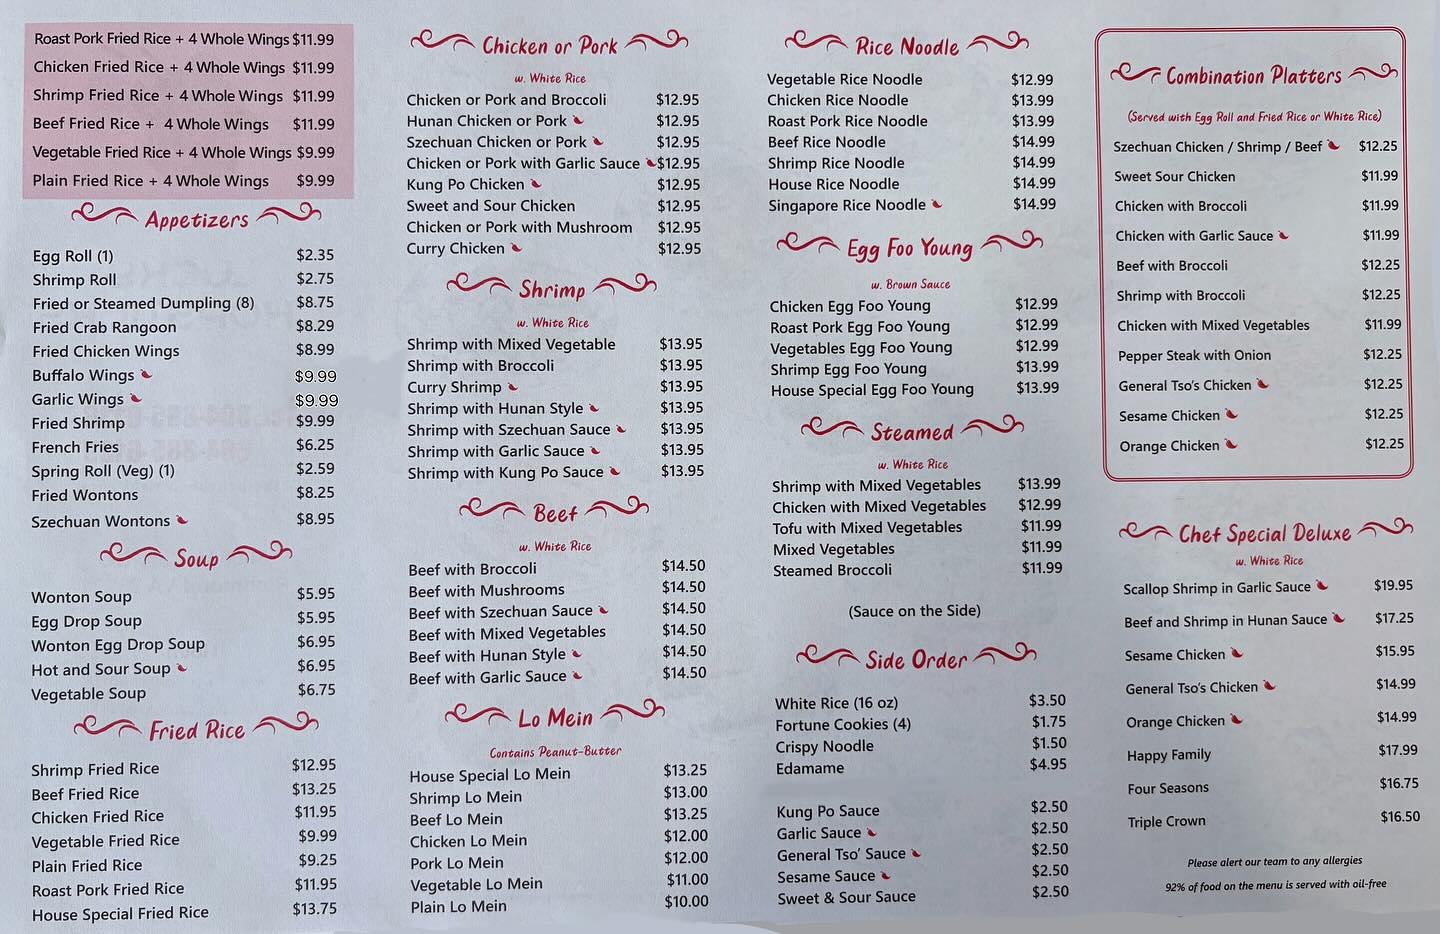 Roast Pork Fried Rice + 4 Whole Wings $11.99
Chicken Fried Rice + 4 Whole Wings $11.99
Shrimp Fried Rice + 4 Whole Wings $11.99
Beef Fried Rice + 4 Whole Wings $11.99
Vegetable Fried Rice + 4 Whole Wings $9.99
Plain Fried Rice + 4 Whole Wings $9.99
Appetizers
Egg Roll (1) $2.35
Shrimp Roll $2.75
Fried or Steamed Dumpling (8) $8.75
Fried Crab Rangoon $8.29
Fried Chicken Wings $8.99
Buffalo Wings $9.99
Garlic Wings $9.99
Fried Shrimp $9.99
French Fries $6.25
Spring Roll (Veg) (1) $2.59
Fried Wontons $8.25
Szechuan Wontons $8.95
Soup
Wonton Soup $5.95
Egg Drop Soup $5.95
Wonton Egg Drop Soup $6.95
Hot and Sour Soup $6.95
Vegetable Soup $6.75
Fried Rice
Shrimp Fried Rice $12.95
Beef Fried Rice $13.25
Chicken Fried Rice $11.95
Vegetable Fried Rice $9.99
Plain Fried Rice $9.25
Roast Pork Fried Rice $11.95
House Special Fried Rice $13.75
Chicken or Pork
w. White Rice
Chicken or Pork and Broccoli $12.95
Hunan Chicken or Pork $12.95
Szechuan Chicken or Pork $12.95
Chicken or Pork with Garlic Sauce $12.95
Kung Po Chicken $12.95
Sweet and Sour Chicken $12.95
Chicken or Pork with Mushroom $12.95
Curry Chicken $12.95
Shrimp
w. White Rice
Shrimp with Mixed Vegetable $13.95
Shrimp with Broccoli $13.95
Curry Shrimp $13.95
Shrimp with Hunan Style $13.95
Shrimp with Szechuan Sauce $13.95
Shrimp with Garlic Sauce $13.95
Shrimp with Kung Po Sauce $13.95
Beef
w. White Rice
Beef with Broccoli $14.50
Beef with Mushrooms $14.50
Beef with Szechuan Sauce $14.50
Beef with Mixed Vegetables $14.50
Beef with Hunan Style $14.50
Beef with Garlic Sauce $14.50
Lo Mein
Contains Peanut-Butter
House Special Lo Mein $13.25
Shrimp Lo Mein $13.00
Beef Lo Mein $13.25
Chicken Lo Mein $12.00
Pork Lo Mein $12.00
Vegetable Lo Mein $11.00
Plain Lo Mein $10.00
Rice Noodle
Vegetable Rice Noodle $12.99
Chicken Rice Noodle $13.99
Roast Pork Rice Noodle $13.99
Beef Rice Noodle $14.99
Shrimp Rice Noodle $14.99
House Rice Noodle $14.99
Singapore Rice Noodle $14.99
Egg Foo Young
w. Brown Sauce
Chicken Egg Foo Young $12.99
Roast Pork Egg Foo Young $12.99
Vegetables Egg Foo Young $12.99
Shrimp Egg Foo Young $13.99
House Special Egg Foo Young $13.99
Steamed
w. White Rice
Shrimp with Mixed Vegetables $13.99
Chicken with Mixed Vegetables $12.99
Tofu with Mixed Vegetables $11.99
Mixed Vegetables $11.99
Steamed Broccoli $11.99
(Sauce on the Side)
Side Order
White Rice (16 oz) $3.50
Fortune Cookies (4) $1.75
Crispy Noodle $1.50
Edamame $4.95
Kung Po Sauce $2.50
Garlic Sauce $2.50
General Tso' Sauce $2.50
Sesame Sauce $2.50
Sweet & Sour Sauce $2.50
Combination Platters
(Served with Egg Roll and Fried Rice or White Rice)
Szechuan Chicken / Shrimp / Beef $12.25
Sweet Sour Chicken $11.99
Chicken with Broccoli $11.99
Chicken with Garlic Sauce $11.99
Beef with Broccoli $12.25
Shrimp with Broccoli $12.25
Chicken with Mixed Vegetables $11.99
Pepper Steak with Onion $12.25
General Tso's Chicken $12.25
Sesame Chicken $12.25
Orange Chicken $12.25
Chef Special Deluxe
w. White Rice
Scallop Shrimp in Garlic Sauce $19.95
Beef and Shrimp in Hunan Sauce $17.25
Sesame Chicken $15.95
General Tso's Chicken $14.99
Orange Chicken $14.99
Happy Family $17.99
Four Seasons $16.75
Triple Crown $16.50
Please alert our team to any allergies
92% of food on the menu is served with oil-free